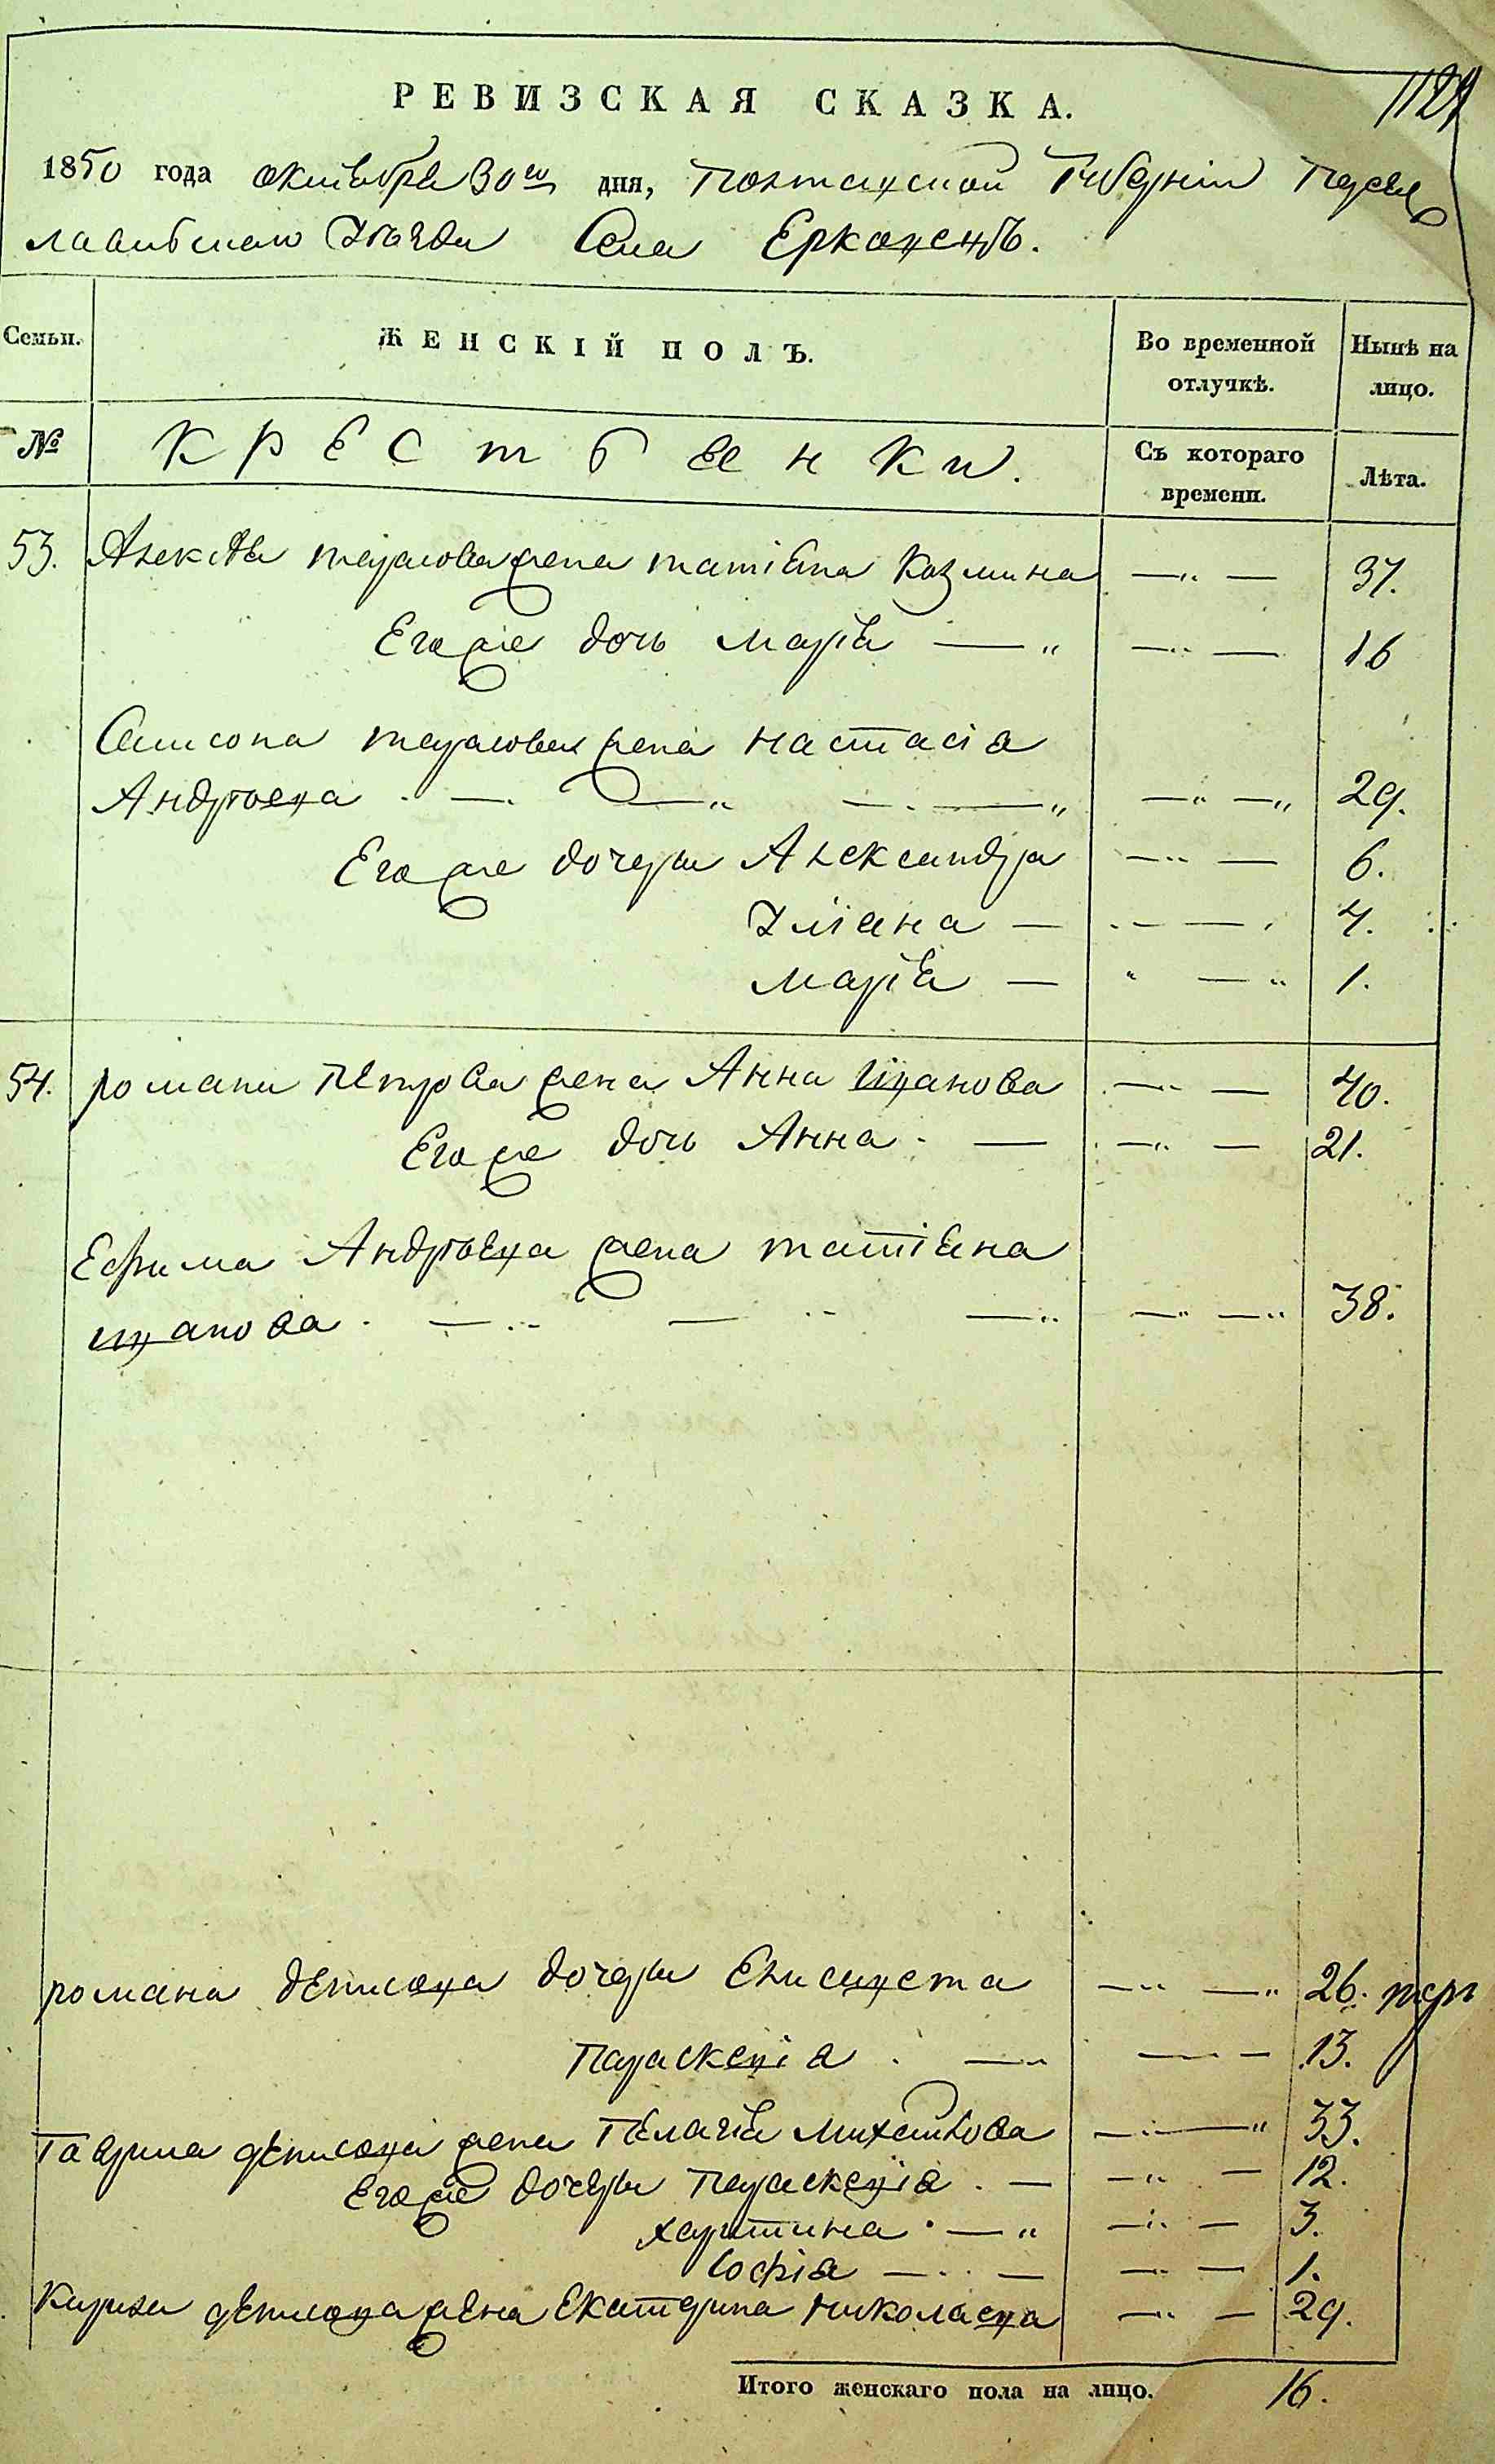 1129
РЕВИЗСКАЯ СКАЗКА.
1850 года октября 30го дня, Полтавской Губерніи Перея
славскаго Уѣзда Села Ерковецъ.
Семьи.
ЖЕНСКІЙ ПОЛЪ.
Во временной отлучкѣ.
Нынѣ на лицо.
№
Крестьянки.
Съ котораго времени.
Лѣта.
53. Алексѣя тарасова жена татіяна Козмина — „ — 37.
Егоже дочь марія — „ — „ — 16
Самсона тарасова жена настасія
Андрѣева . — . — „ — . — „ — „ — „ 29.
Егоже дочери Александра — „ — 6.
Уліана — . — — 4.
марія — „ — „ 1.
54. романа Петрова жена Анна иванова — „ — 40.
Егоже дочь Анна . — — „ — 21.
Ефима Андрѣева жена татіяна
иванова . — „ — „ — „ — „ — „ 38.
романа денисова дочери Елисавета — „ — „ 26.
Параскевія . — — „ — 13.
Гаврила денисова жена Пелагія михайлова — „ — „ 33.
Егоже дочери Параскевія . — — „ — 12.
харитина . — „ — „ — 3.
софія — . . — — „ — 1.
Кирила денисова жена Екатерина николаева — „ — 29.
Итого женскаго пола на лицо. 16.